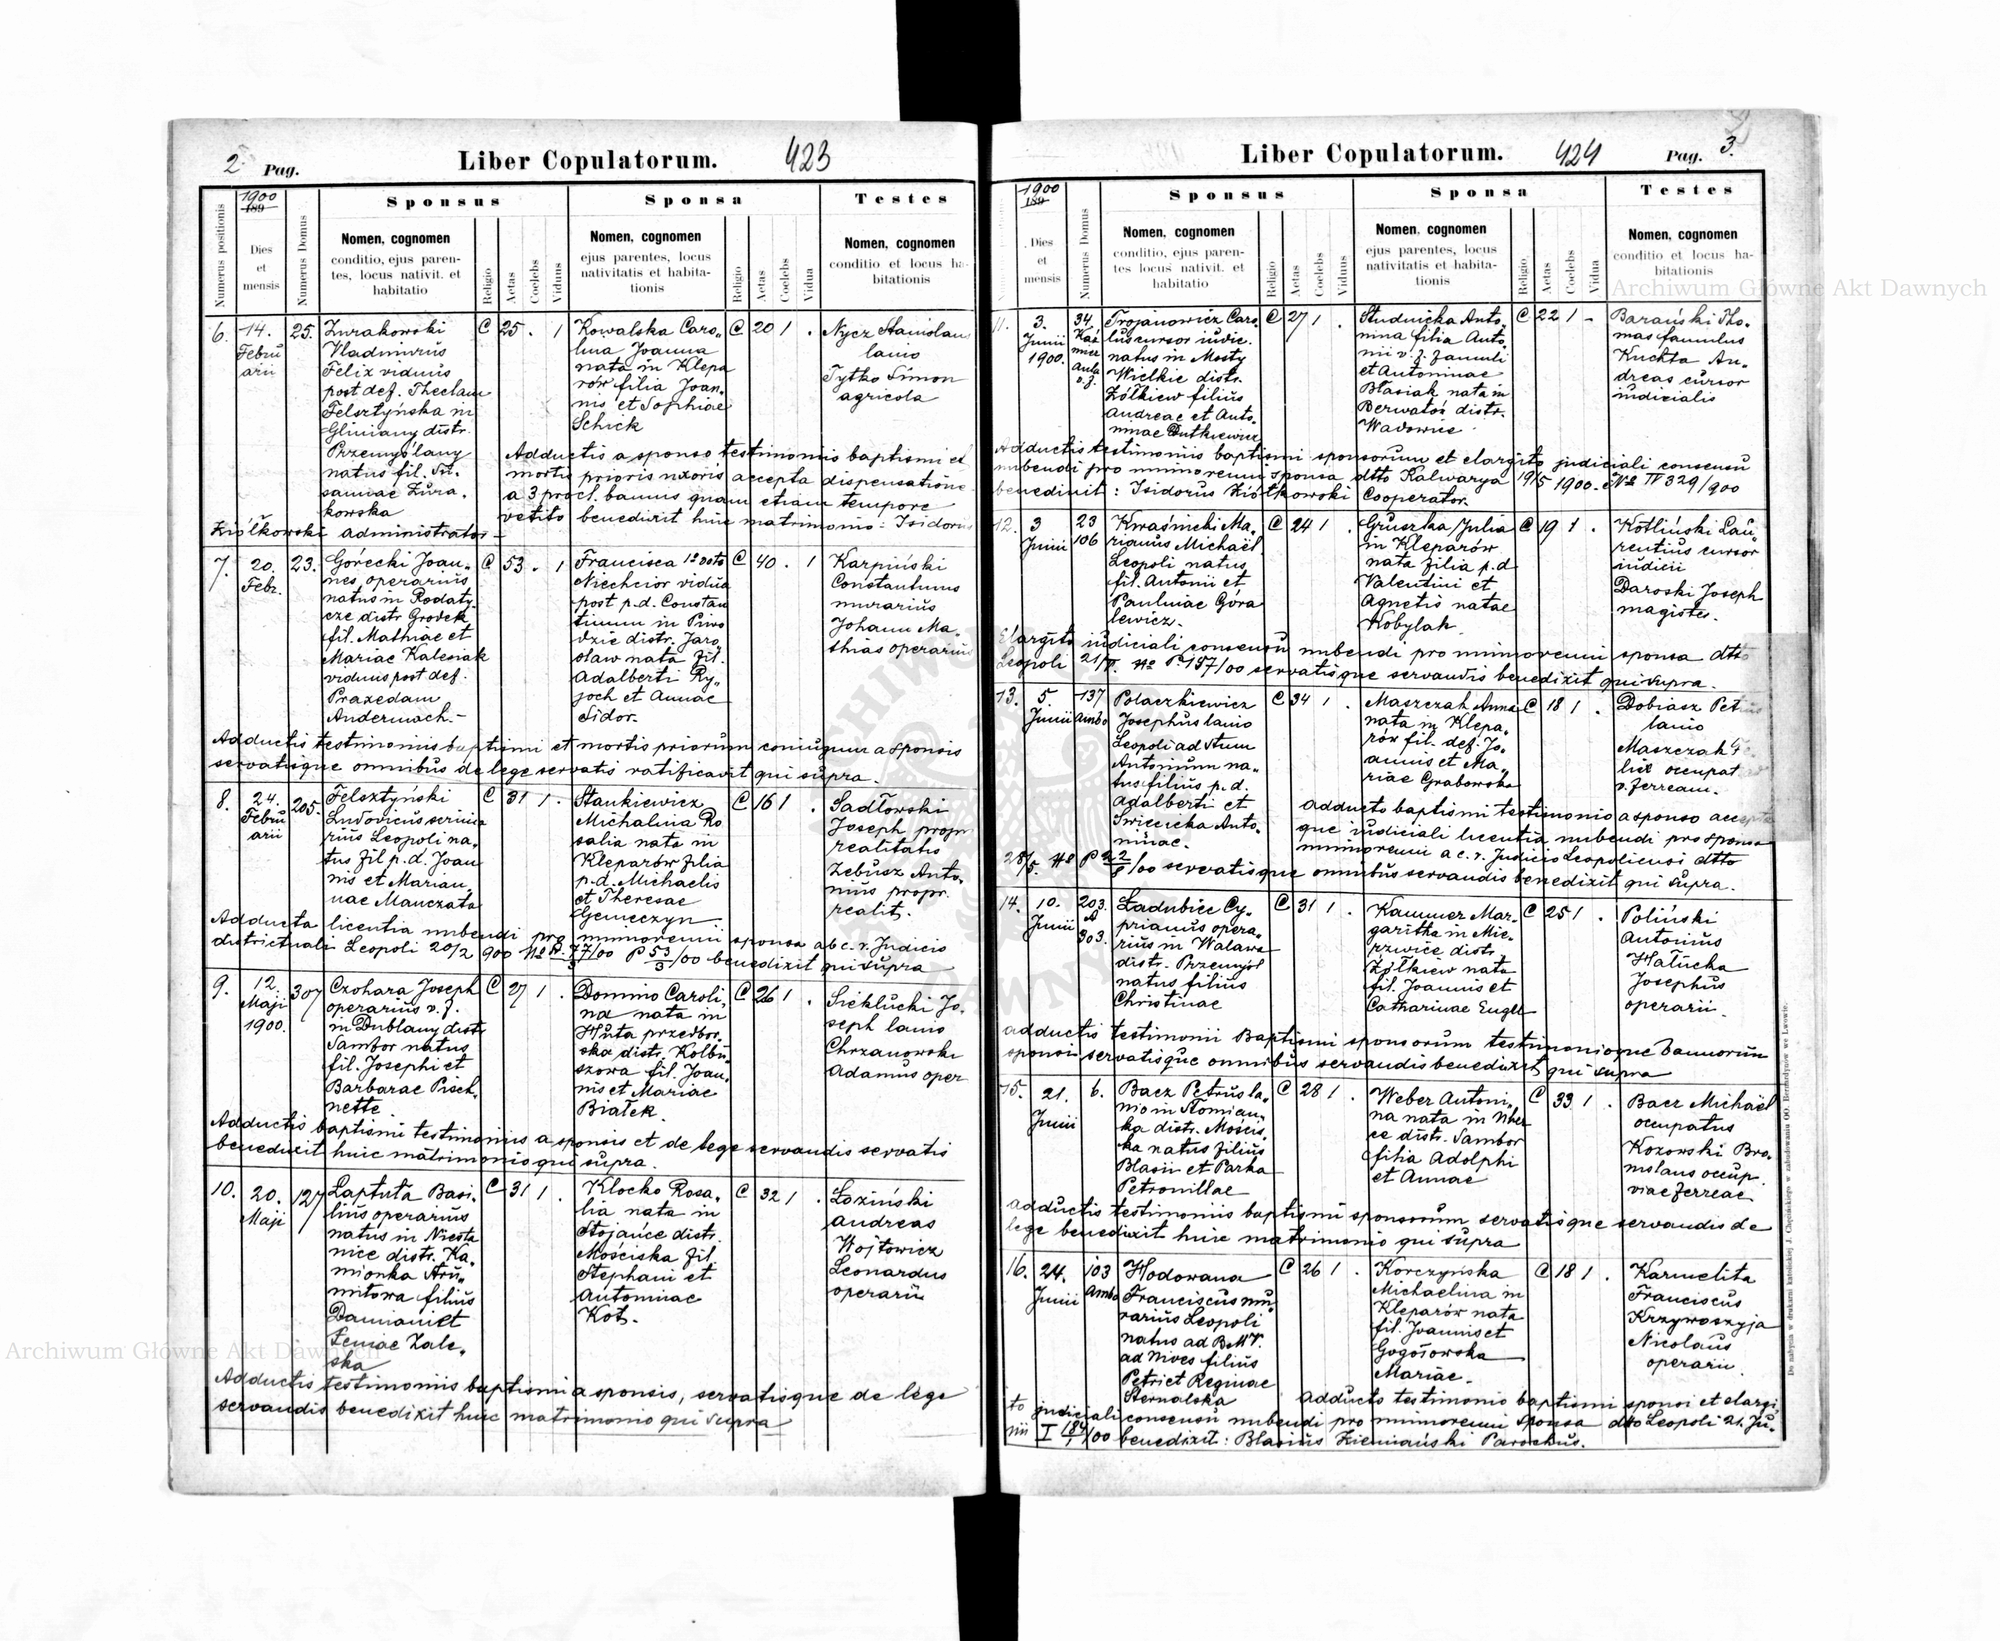 2
Pag.
Liber Copulatorum.
423
Numerus positionis
1900
189
Dies
et
mensis
Numerus Domus
Sponsus
Nomen, cognomen
conditio, ejus paren-
tes, locus nativit. et
habitatio
Religio
Aetas
Coelebs
Viduus
Sponsa
Nomen, cognomen
ejus parentes, locus
nativitatis et habita-
tionis
Religio
Aetas
Coelebs
Vidua
Testes
Nomen, cognomen
conditio et locus ha-
bitationis
6.
14.
Febru
arii
25.
Żurakowski
Vladimirus
Felix viduus
post def. Theclam
Felsztyńska in
Gliniany distr.
Przemyślany
natus fil. Su-
sannae Żura-
kowska
C 25 . 1
Kowalska Caro-
lina Joanna
nata in Klepa
rów filia Joan-
nis et Sophiae
Schick
C 20 1 .
Nycz Stanislaus
lanio
Tytko Simon
agricola
Adductis a sponso testimoniis baptismi et
mortis prioris uxoris accepta dispensatione
a 3 procl. bannis quam etiam tempore
vetito benedixit huic matrimonio: Isidorus
Ziółkowski administrator
7.
20.
Febr.
23.
Górecki Joan-
nes operarius
natus in Rodaty-
cze distr Grodek
fil. Mathiae et
Mariae Kalesiak
viduus post def.
Praxedam
Andermach.-
C 53 . 1
Francisca 1o voto
Niechcior vidua
post p.d. Constan
tinum in
dzie distr. Jaro
slaw nata fil.
Adalberti Ry-
joch et Annae
Sidor.
C 40 . 1
Karpiński
Constantinus
murarius
Johann Ma-
thias operarius
Adductis testimoniis baptismi et mortis priorum coniugum a sponsis
servatisque omnibus de lege servatis ratificavit qui supra.
8.
24.
Febru
arii
205.
Felsztyński
Ludovicus scrinia
rius Leopoli na-
tus fil p.d. Joan
nis et Marian-
nae Manczata
C 31 1 .
Stankiewicz
Michalina Ro
salia nata in
Kleparów filia
p.d. Michaelis
et Theresae
Gemeczyn
C 16 1 .
Sadłowski
Joseph propr
realitatis
Zebusz Anto-
nius propr.
realit.
Adducta licentia nubendi pro minorenni sponsa ab c. r. Judicio
districtuali Leopoli 20/2 900 benedixit qui supra
9.
12
Maji
1900.
307
Czohara Joseph
operarius v. f.
in Dublany distr
Sambor natus
fil. Josephi et
Barbarae Pisch-
nette
C 27 1 .
Domino Caroli-
na nata in
Huta przedbor-
ska distr. Kolbu-
szowa fil. Joan-
nis et Mariae
Białek.
C 26 1 .
Sieklucki Jo-
seph lanio
Chrzanowski
Adamus oper
Adductis baptismi testimoniis a sponsis et de lege servandis servatis
benedixit huic matrimonio qui supra.
10.
20.
Maji
127
Łaptuta Basi-
lius operarius
natus in Niesta
nice distr. Ka-
mionka Stru-
miłowa filius
Damiani et
Xeniae Zale-
ska
C 31 1 .
Klocko Rosa-
lia nata in
Stojańce distr.
Mościska fil.
Stephani et
Antoninae
Kot.
C 32 1 .
Łoziński
Andreas
Wojtowicz
Leonardus
operarii
Adductis testimoniis baptismi a sponsis, servatisque de lege
servandis benedixit huic matrimonio qui supra
Liber Copulatorum.
424
Pag.
3.
1900
189
Dies
et
mensis
Numerus Domus
Sponsus
Nomen, cognomen
conditio, ejus paren-
tes locus nativit. et
habitatio
Religio
Aetas
Coelebs
Viduus
Sponsa
Nomen, cognomen
ejus parentes, locus
nativitatis et habita-
tionis
Religio
Aetas
Coelebs
Vidua
Testes
Nomen, cognomen
conditio et locus ha-
bitationis
11.
3.
Junii
1900.
34
Trojanowicz Caro-
lus cursor iudic.
natus in Mosty
Wielkie distr.
Żółkiew filius
Andreae et Anto-
ninae Dutkiewicz
C 27 1 .
Studnicka Anto-
nina filia Anto-
nii v. f. famuli
et Antoninae
Błasiak nata in
Berwałd distr.
Wadowice.
C 22 1 -
Barański Tho-
mas famulus
Kuchta An-
dreas cursor
iudicialis
Adductis testimoniis baptismi sponsorum et elargito judiciali consensu
nubendi pro minorenni sponsa dtto Kalwarya 19/5 1900. No IV 329/900
benedixit: Isidorus Ziółkowski Cooperator.
12.
3
Junii
23
106
Kwaśnicki Ma-
rianus Michaël
Leopoli natus
fil. Antonii et
Paulinae Góra
lewicz.
C 24 1 .
Gruszka Julia
in Kleparów
nata filia p.d
Valentini et
Agnetis natae
Kobylak.
C 19 1 .
Kotliński Lau-
rentius cursor
iudicii
Daroski Joseph
magister.
Elargito iudiciali consensu nubendi pro minorenni sponsa dtto
Leopoli 21/V. No P.157/00 servatisque servandis benedixit qui supra.
13.
5.
Junii
137
Ambo
Polaczkiewicz
Josephus lanio
Leopoli ad Stum
Antonium na-
tus filius p.d.
Adalberti et
Swiecicka Anto-
ninae.
C 34 1 .
Maszczak Anna
nata in Klepa-
rów fil. def. Jo-
annis et Ma-
riae Grabowska
C 18 1 .
Dobiasz Petrus
lanio
Maszczak
occupat
v. ferream.
Adducto baptismi testimonio a sponso accepta
que iudiciali licentia nubendi pro sponsa
minorenni a c. r. Judicio Leopoliensi dtto
28/5. No P 22/6/00 servatisque omnibus servandis benedixit qui supra.
14.
10.
Junii
203.
303.
Ładubiec Cy-
prianus opera-
rius in Walawa
distr. Przemyśl
natus filius
Christinae
C 31 1 .
Kammer Mar-
garitta in Mie-
rzwice distr.
Żółkiew nata
fil. Joannis et
Catharinae Engel
C 25 1 .
Poliński
Antonius
Hałucha
Josephus
operarii.
Adductis testimonii Baptismi sponsorum testimonioque bannorum
sponsi servatisque omnibus servandis benedixit qui supra
15.
21.
Junii
6.
Bacz Petrus la-
nio in Słomian-
ka distr. Mościs-
ka natus filius
Blasii et Parka
Petronillae
C 28 1 .
Weber Antoni-
na nata in
ce distr. Sambor
filia Adolphi
et Annae
C 33 1 .
Bacz Michaël
occupatus
Kozowski Bro-
nislaus occup.
viae ferreae
Adductis testimoniis baptismi sponsorum servatisque servandis de
lege benedixit huic matrimonio qui supra
16.
24.
Junii
103
Ambo
Hodowana
Franciscus mu-
rarius Leopoli
natus ad B.M.V.
ad Nives filius
Petri et Reginae
Sternalska
C 26 1 .
Korczyńska
Michaelina in
Kleparów nata
fil. Joannis et
Gogosowska
Mariae.
C 18 1 .
Karmelita
Franciscus
Krzywoszyja
Nicolaus
operarii.
Adducto testimonio baptismi sponsi et elargi-
to judiciali consensu nubendi pro minorenni sponsa dtto Leopoli 21. Ju-
nii benedixit: Blasius Ziemiański Parochus.
Do nabycia w drukarni katolickiej J. Chęcińskiego w zabudowaniu OO. Bernardynów we Lwowie.
Archiwum Główne Akt Dawnych
Archiwum Główne Akt Dawnych